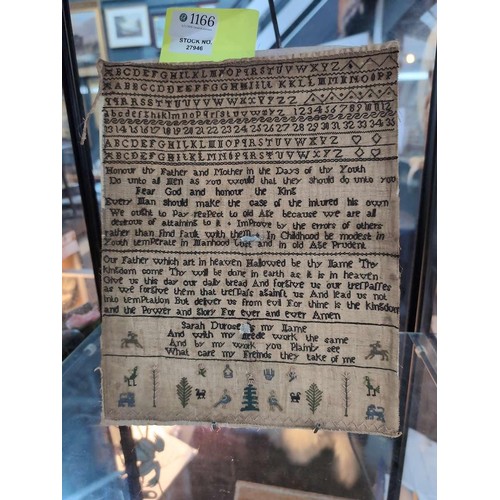 1166
STOCK NO.
27946
ABCDEFGHIKLMNOPQRSTUVWXYZ
13 14 15 16 17 18 19 20 21 22 23 24 25 26 27 28 29 30 31 32 33 34 35
ABCDEFGHIKLMNOPQRSTUVWXYZ
ABCDEFGHIKLMNOPQRSTUVWXYZ
Honour thy Father and Mother in the Days of thy Youth
Do unto all Men as you would that they should do unto you
Fear God and honour the King
Every Man should make the case of the injured his own
We ought to Pay respect to old Age because we are all
desirous of attaining to it Improve by the errors of others
rather than find fault with them In Childhood be modest in
Youth temperate in Manhood and in old Age Prudent
Our Father which art in heaven Hallowed be thy Name Thy
kingdom come Thy will be done in earth as it is in heaven
Give us this day our daily bread And forgive us our trespasses
as we forgive them that trespass against us And lead us not
into temptation But deliver us from evil For thine is the kingdom
and the Power and Glory For ever and ever Amen
Sarah Durose is my Name
And with my needle work the same
And by my work you Plainly see
What care my Freinds they take of me